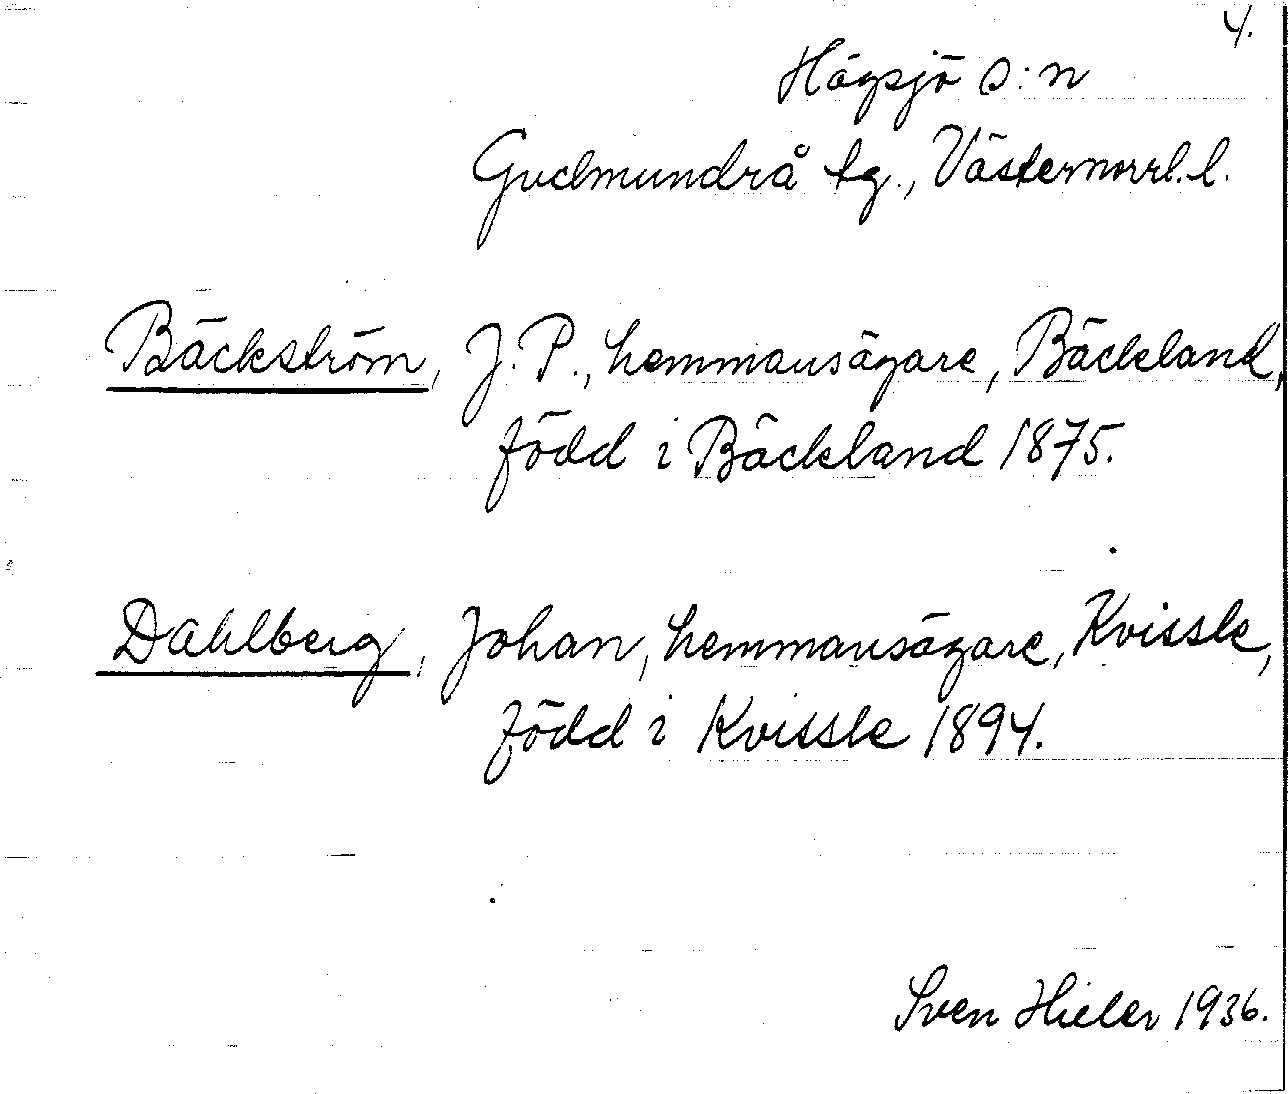 4.
Högsjö s:n
Gudmundrå tg., Västernorrl. l.
Bäckström, J. P., hemmansägare, Bäckland,
född i Bäckland 1875.
Dahlberg, Johan, hemmansägare, Kvissle,
född i Kvissle 1894.
Sven Hieler 1936.